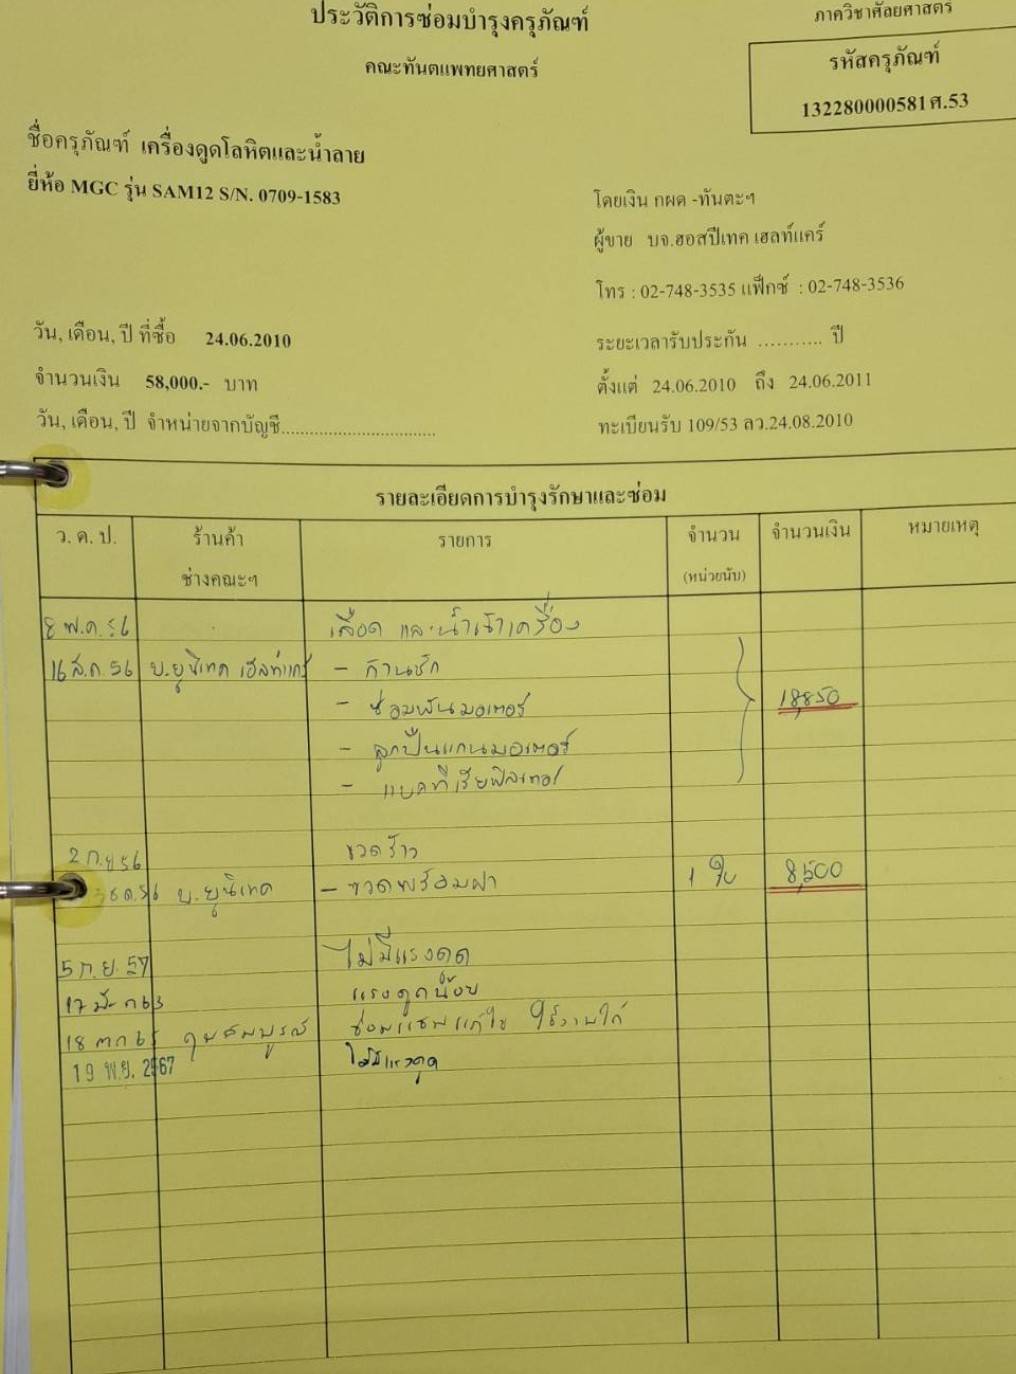 ประวัติการซ่อมบำรุงครุภัณฑ์
ภาควิชาศัลยศาสตร์
คณะทันตแพทยศาสตร์
รหัสครุภัณฑ์
132280000581ศ.53
ชื่อครุภัณฑ์ เครื่องดูดโลหิตและน้ำลาย
ยี่ห้อ MGC รุ่น SAM12 S/N. 0709-1583
โดยเงิน กผด -ทันตะฯ
ผู้ขาย บจ.ฮอสปีเทค เฮลท์แคร์
โทร : 02-748-3535 แฟ็กซ์ : 02-748-3536
วัน, เดือน, ปี ที่ซื้อ 24.06.2010
ระยะเวลารับประกัน ........... ปี
จำนวนเงิน 58,000.- บาท
ตั้งแต่ 24.06.2010 ถึง 24.06.2011
วัน, เดือน, ปี จำหน่ายจากบัญชี..............................
ทะเบียนรับ 109/53 ลว.24.08.2010
รายละเอียดการบำรุงรักษาและซ่อม
ว. ด. ป. ร้านค้า รายการ จำนวน จำนวนเงิน หมายเหตุ
ช่างคณะฯ (หน่วยนับ)
8 พ.ค. 56 เลือด และน้ำเข้าเครื่อง
16 ส.ค. 56 บ.ยูนิเทค เฮลท์แคร์ - ก้านชัก
- ซ่อมพันมอเตอร์ 18,850
- ลูกปืนแกนมอเตอร์
- แบคทีเรียฟิลเตอร์
2 ก.ย 56 ขวดร้าว
บ.ยูนิเทค - ขวดพร้อมฝา 1 ใบ 8,500
5 ก.ย. 57 ไม่มีแรงดูด
17 มี.ค 63 แรงดูดน้อย
18 ตค 65 คุณสมบูรณ์ ใช้งานได้
19 พ.ย. 2567 ไม่มีแรงดูด